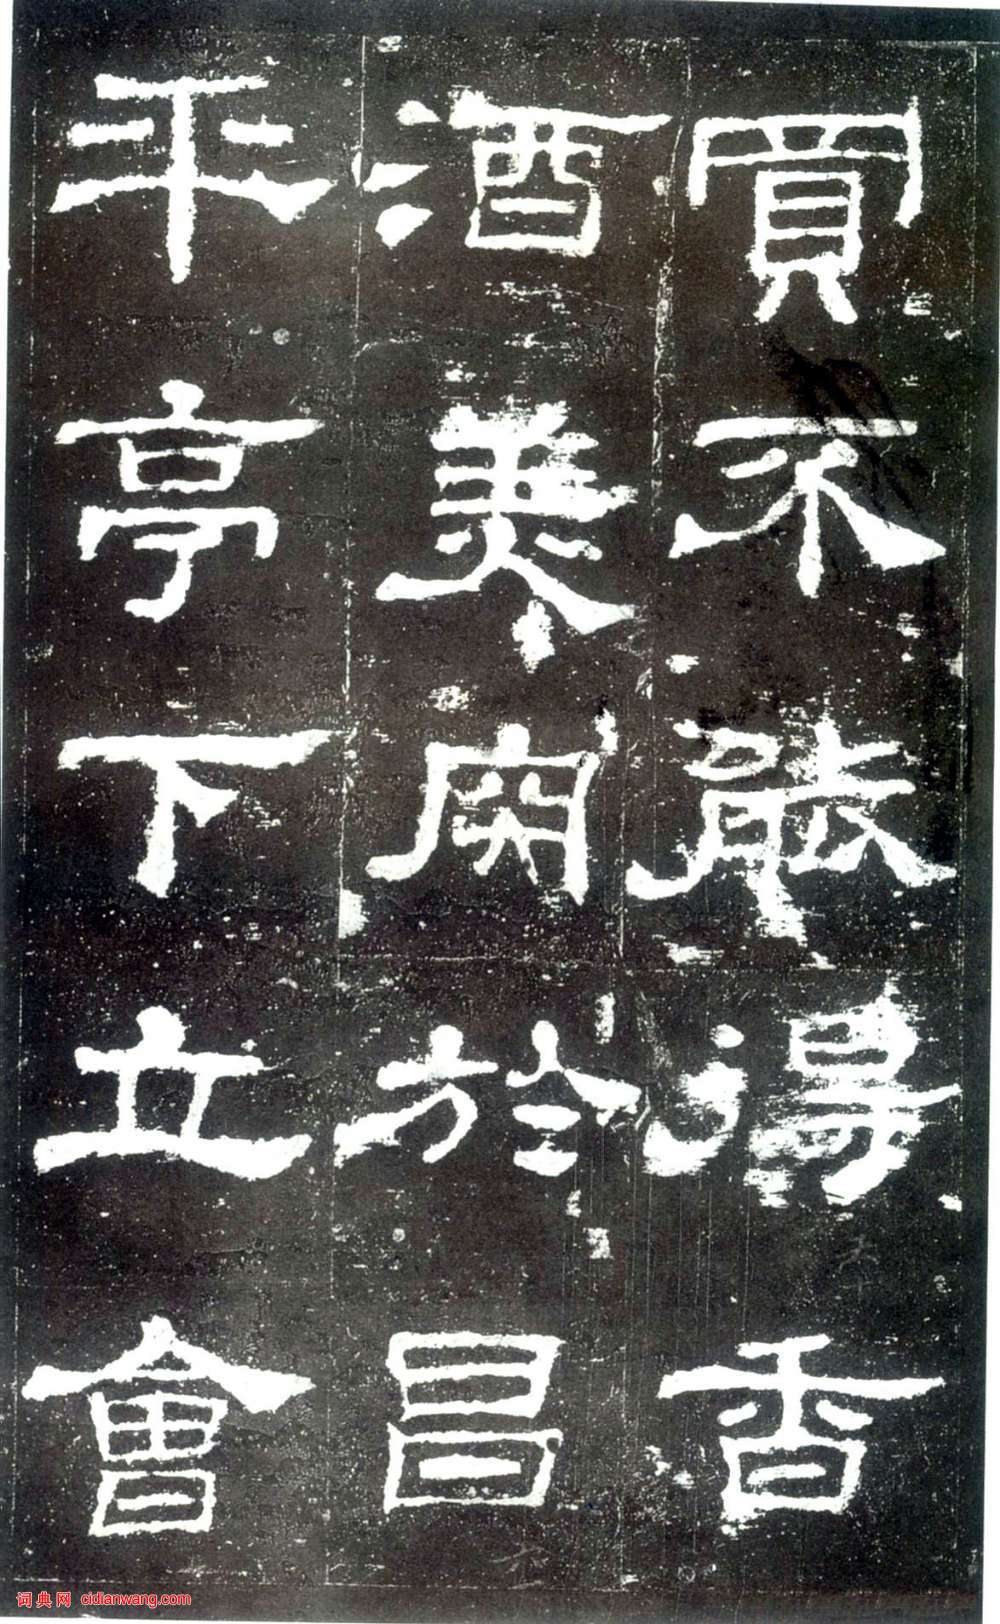 買不能得香
酒美肉於昌
平亭下立會
词典网 cidianwang.com